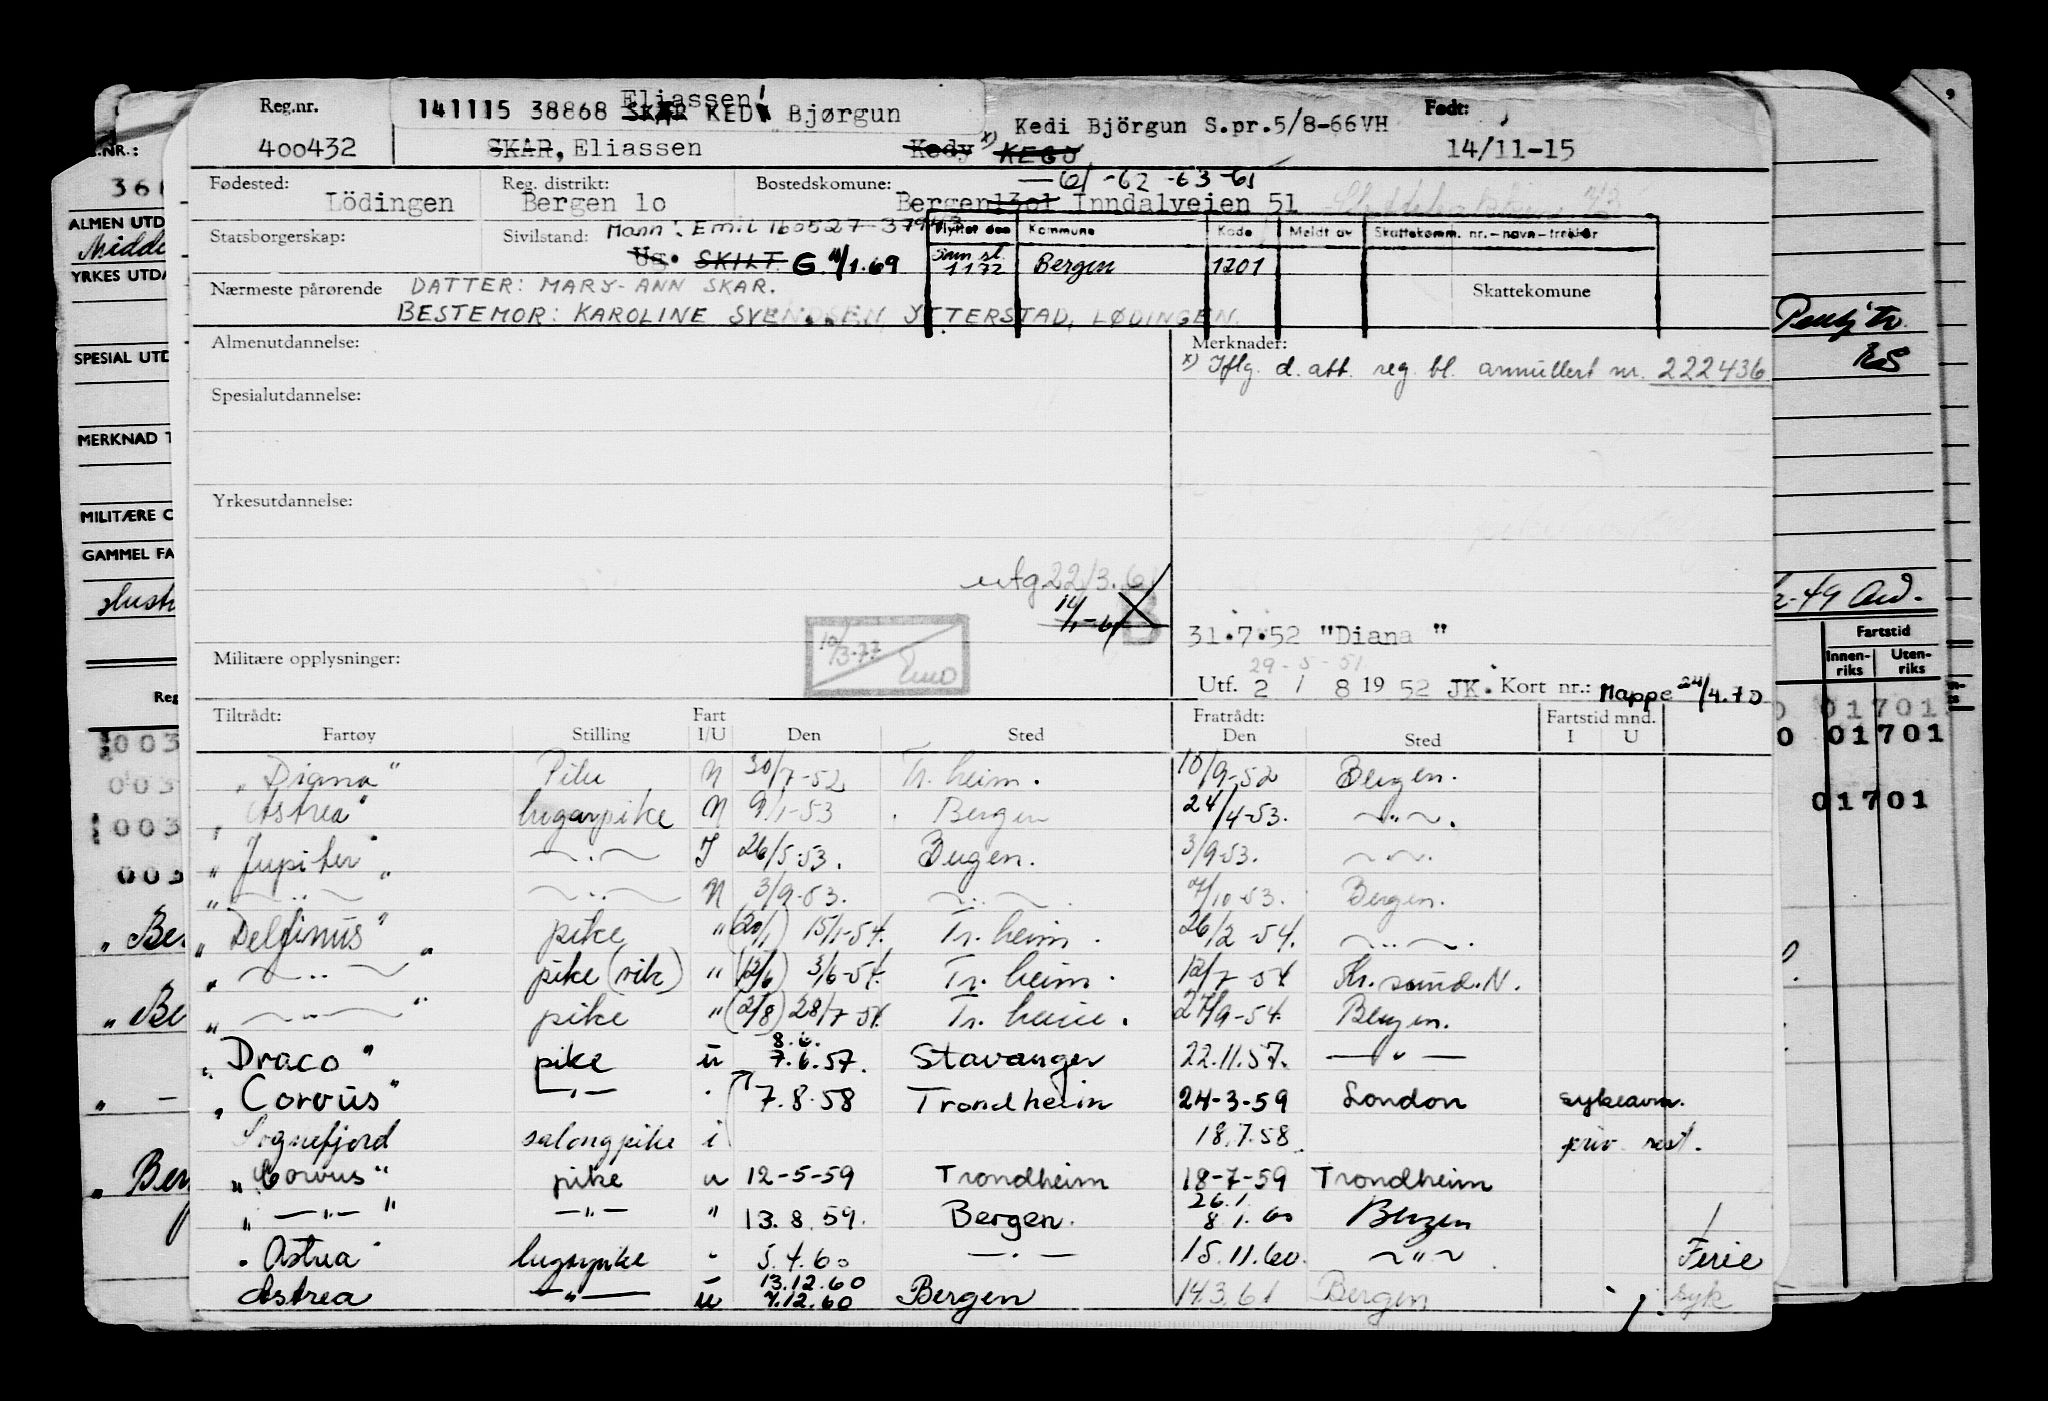 Reg.nr. 141115 38868 SKAR KEDY Eliassen! Bjørgun Kedi Björgun S.pr.5/8-66VH Født:
400432 SKAR, Eliassen Kedy x) KEGJ 14/11-15
Fødested: Reg. distrikt: Bostedskomune: -61 -62 -63 -65
Lödingen Bergen 1o Bergen 1301 Inndalveien 51
Statsborgerskap: Sivilstand: Mann: Emil 160527 37943
Flyttet den Kommune Kode Meldt av Skattekomm. nr.-navn-trekkør
Ug. SKILT G. 11/1.69 Sam st. 1172 Bergen 1201
Nærmeste pårørende DATTER: MARY-ANN SKAR. Skattekomune
BESTEMOR: KAROLINE SVENDSEN YTTERSTAD, LØDINGEN.
Almenutdannelse: Merknader:
x) Iflg. d. att. reg. bl. annullert nr. 222436
Spesialutdannelse:
Yrkesutdannelse:
utg 22/3.61
14/1-61 B
31.7.52 "Diana "
10/3-77
Militære opplysninger: 29-5-51
Utf. 2 / 8 1952 JK. Kort nr.: Mappe 24/4.70
Tiltrådt: Fart Fratrådt: Fartstid mnd.
Fartøy Stilling I/U Den Sted Den Sted I U
"Diana" Pike N 30/7-52 Tr.heim. 10/9-52 Bergen.
"Astrea" lugarpike N 9/1-53 Bergen 24/4-53. -"-.
"Jupiter" -"- I 26/5-53. Bergen. 3/9-53. -"-.
" -"- " -"- N 3/9-53. -"-. 7/10-53. Bergen.
"Delfinus" pike " (20/1) 15/1-54. Tr.heim. 26/2-54. -"-.
" -"- " pike (vik) " (12/6) 3/6-54. Tr.heim. 12/7-54 Kr.sund.N.
" -"- " pike " (2/8) 28/7-54. Tr.heim. 27/9-54. Bergen.
"Draco" pike u 8.6. 7.6.57. Stavanger 22.11.57. -"-
"Corvus" -"- " 7.8.58 Trondheim 24-3-59 London sykeavm.
Sognefjord salongpike i 18.7.58 priv. rest.
"Corvus" pike u 12-5-59 Trondheim 18-7-59 Trondheim
" -"- " -"- " 13.8.59. Bergen. 26.1. 8.1.60 Bergen
"Astrea" lugarpike " 5.4.60 -"- 15.11.60. -"- Ferie
Astrea -"- u 13.12.60 7.12.60 Bergen 14.3.61 Bergen syk
ALMEN UTD
YRKES UTDA
SPESIAL UTD
MERKNAD T
MILITÆRE O
GAMMEL FA
Reg
003
003
003
003
" Ber
" Be
" -
" Ber
-49
Fartstid
Innen-riks Uten-riks
01701
0 01701
01701